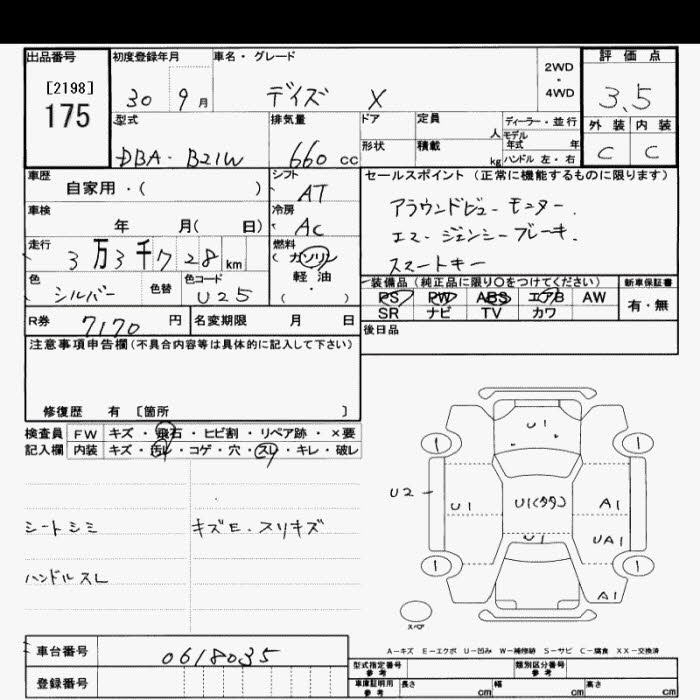 出品番号 [2198] 175
初度登録年月 30 9月
車名・グレード デイズ X
2WD・4WD
評価点 3.5
型式 DBA-B21W
排気量 660cc
ドア
定員 人
ディーラー・並行
モデル年式 年
ハンドル 左・右
形状
積載 kg
外装 C
内装 C
車歴 自家用・( )
シフト AT
セールスポイント(正常に機能するものに限ります)
アラウンドビューモニター.
エマージェンシーブレーキ.
スマートキー
車検 年 月( 日)
冷房 AC
走行 3万3千728km
燃料 (ガソリン 軽・油 ( ・ )
色 シルバー
色替
色コード U25
装備品(純正品に限り○をつけてください)
PS PW ABS エアB AW
SR ナビ TV カワ
新車保証書 有・無
R券 7170円
名変期限 月 日
後日品
注意事項申告欄(不具合内容等は具体的に記入して下さい)
修復歴 有 〔箇所 〕
検査員 FW キズ・飛石・ヒビ割・リペア跡・×要
記入欄 内装 キズ・汚レ・コゲ・穴・スレ・キレ・破レ
シートシミ
キズE.スリキズ
ハンドルスレ
U1
1 1
U2 U1 U1(タタ) A1
U1 UA1
1 1
A1
スペア
A-キズ E-エクボ U-凹み W-補修跡 S-サビ C-腐食 XX-交換済
車台番号 0618035
登録番号
型式指定番号 参考
類別区分番号 参考
車庫証明用 参考 長さ cm 幅 cm 高さ cm